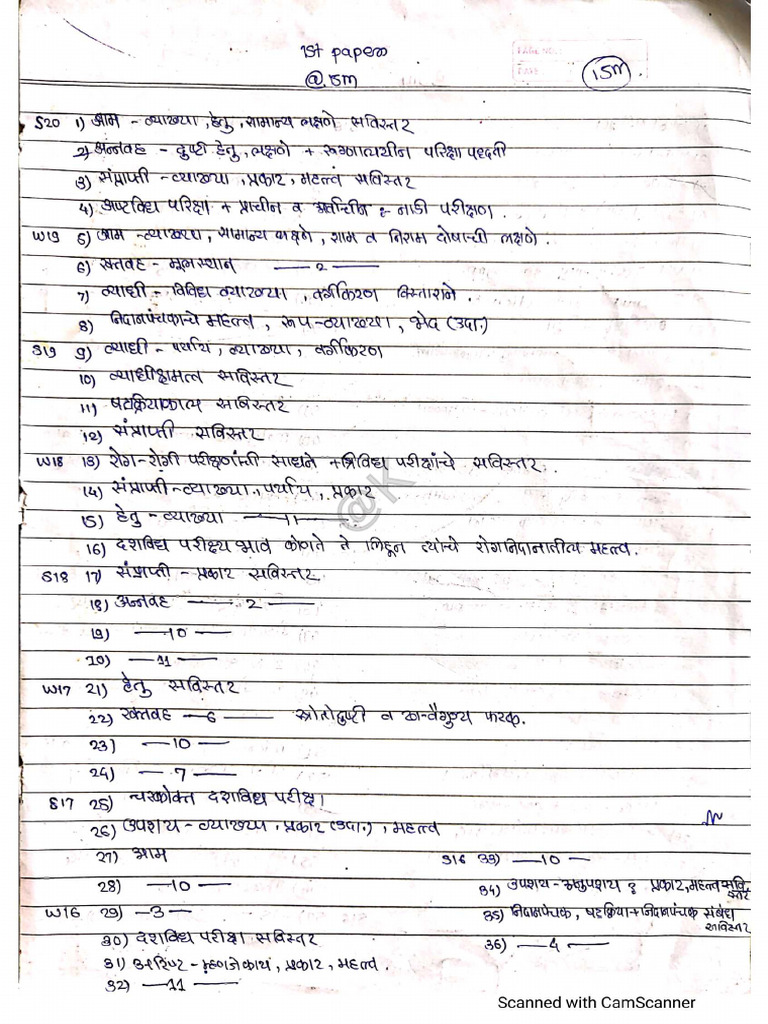 1st paper
@ 15M
PAGE NO.
DATE
15M
S20 1) आम - व्याख्या, हेतु, सामान्य लक्षणे सविस्तर
2) अन्नवह - दुष्टी हेतु, लक्षणे + रुग्णात्यधीन परिक्षा पद्दती
3) संप्राप्ती - व्याख्या, प्रकार, महत्त्व सविस्तर
4) अष्टविध परिक्षा + प्राचीन व अर्वाचीन नाडी परीक्षण.
W19 5) आम - व्याख्या, सामान्य लक्षने, साम व निराम दोषाची लक्षणे.
6) रक्तवह - मूलस्थान — 2 —
7) व्याधी - विविध व्याख्या, वर्गीकरण विस्ताराने.
8) निदानपंचकाचे महत्त्व, रूप - व्याख्या, भेद (उदा.)
S19 9) व्याधी - पर्याय, व्याख्या, वर्गीकरण
10) व्याधीक्षमत्व सविस्तर
11) षटक्रियाकाल सविस्तर
12) संप्राप्ती सविस्तर
W18 13) रोग-रोगी परीक्षणांची साधने + त्रिविध परीक्षांचे सविस्तर.
14) संप्राप्ती - व्याख्या, पर्याय, प्रकार
15) हेतु - व्याख्या — 11 —
16) दशविध परीक्ष्य भाव कोणते ते लिहून त्यांचे रोगनिदानातील महत्त्व.
S18 17) संप्राप्ती - प्रकार सविस्तर
18) अन्नवह — 2 —
19) — 10 —
20) — 11 —
W17 21) हेतु सविस्तर
22) रक्तवह — 6 — स्रोतोदुष्टी व ख-वैगुण्य फरक.
23) — 10 —
24) — 7 —
S17 25) चरकोक्त दशविध परीक्षा
26) उपशय - व्याख्या, प्रकार (उदा.), महत्व
27) आम
28) — 10 —
W16 29) — 3 —
30) दशविध परीक्षा सविस्तर
31) अरिष्ट - म्हणजे काय, प्रकार, महत्व.
32) — 11 —
S16 33) — 10 —
34) उपशय - अनुपशय प्रकार, महत्व सवि
स्तर
35) निदानपंचक, षटक्रिया + निदानपंचक संबंध
सविस्तर
36) — 4 —
@K
Scanned with CamScanner